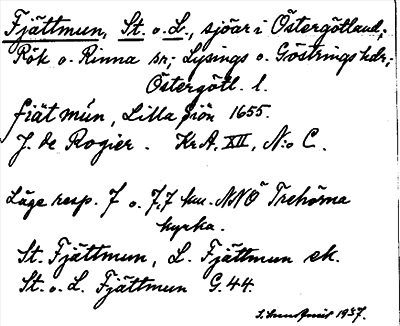 Fjättmun, St. o. L., sjöar i Östergötland;
Rök o. Rinna sr; Lysings o. Göstrings hdr;
Östergötl. l.
fiät mún, Lilla siön 1655.
J. de Rogier. KrA, XII, N:o C.
Läge resp. 7 o. 7,7 km. NNÖ Trehörna
kyrka.
St. Fjättmun, L. Fjättmun ek.
St. o. L. Fjättmun G. 44.
1937.